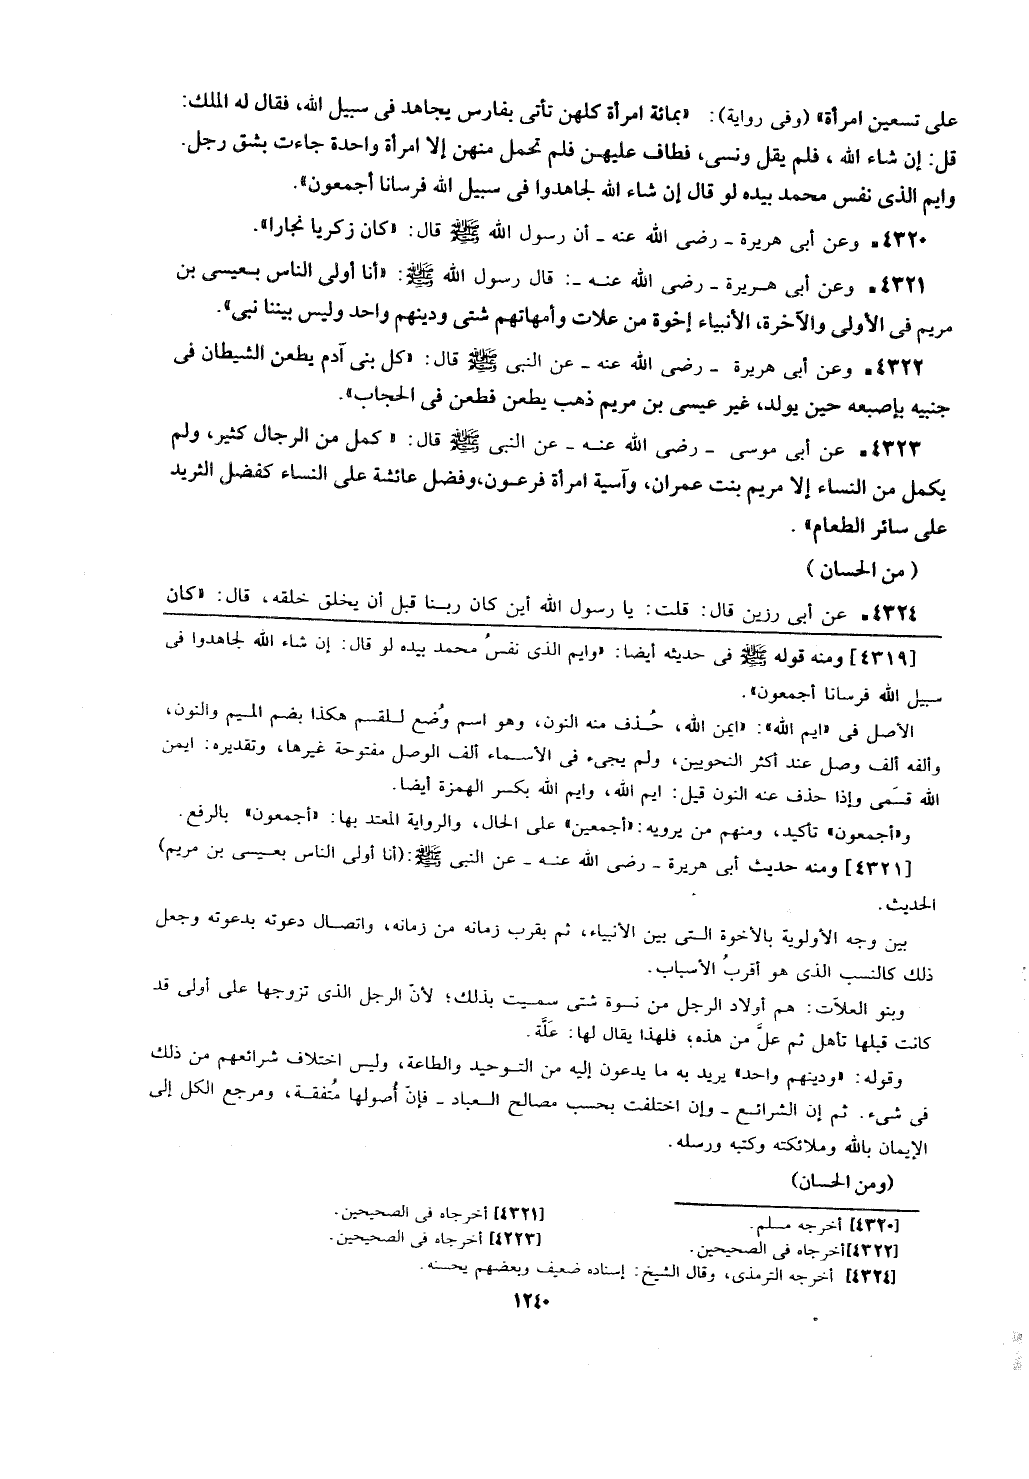 على تسعين امرأة» (وفى رواية): «بمائة امرأة كلهن تأتى بفارس يجاهد فى سبيل الله، فقال له الملك:
قل: إن شاء الله ، فلم يقل ونسى، فطاف عليهن فلم تحمل منهن إلا امرأة واحدة جاءت بشق رجل.
وايم الذى نفس محمد بيده لو قال إن شاء الله لجاهدوا فى سبيل الله فرسانا أجمعون».
٤٣٢٠. وعن أبى هريرة ـ رضى الله عنه ـ أن رسول الله ﷺ قال: «كان زكريا نجارا».
٤٣٢١. وعن أبى هريرة ـ رضى الله عنه ـ: قال رسول الله ﷺ: «أنا أولى الناس بعيسى بن
مريم فى الأولى والآخرة، الأنبياء إخوة من علات وأمهاتهم شتى ودينهم واحد وليس بيننا نبى».
٤٣٢٢. وعن أبى هريرة ـ رضى الله عنه ـ عن النبى ﷺ قال: «كل بنى آدم يطعن الشيطان فى
جنبيه بإصبعه حين يولد، غير عيسى بن مريم ذهب يطعن فطعن فى الحجاب».
٤٣٢٣. عن أبى موسى ـ رضى الله عنه ـ عن النبى ﷺ قال: « كمل من الرجال كثير، ولم
يكمل من النساء إلا مريم بنت عمران، وآسية امرأة فرعون،وفضل عائشة على النساء كفضل الثريد
على سائر الطعام» .
( من الحسان )
٤٣٢٤. عن أبى رزين قال: قلت: يا رسول الله أين كان ربنا قبل أن يخلق خلقه، قال: «كان
[٤٣١٩] ومنه قوله ﷺ فى حديثه أيضا: «وايم الذى نفسُ محمد بيده لو قال: إن شاء الله لجاهدوا فى
سبيل الله فرسانا أجمعون».
الأصل فى «ايم الله»: «ايمن الله، حُذف منه النون، وهو اسم وُضع للقسم هكذا بضم الميم والنون،
وألفه ألف وصل عند أكثر النحويين، ولم يجىء فى الأسماء ألف الوصل مفتوحة غيرها، وتقديره: ايمن
الله قسَمى وإذا حذف عنه النون قيل: ايم الله، وايم الله بكسر الهمزة أيضا.
و«أجمعون» تأكيد، ومنهم من يرويه:«أجمعين» على الحال، والرواية المعتد بها: «أجمعون» بالرفع.
[٤٣٢١] ومنه حديث أبى هريرة ـ رضى الله عنه ـ عن النبى ﷺ:(أنا أولى الناس بعيسى بن مريم)
الحديث.
بين وجه الأولوية بالأخوة التى بين الأنبياء، ثم بقرب زمانه من زمانه، واتصال دعوته بدعوته وجعل
ذلك كالنسب الذى هو أقربُ الأسباب.
وبنو العلاّت: هم أولاد الرجل من نسوة شتى سميت بذلك؛ لأنّ الرجل الذى تزوجها على أولى قد
كانت قبلها تأهل ثم علَّ من هذه، فلهذا يقال لها: عَلَّة.
وقوله: «ودينهم واحد» يريد به ما يدعون إليه من التوحيد والطاعة، وليس اختلاف شرائعهم من ذلك
فى شىء. ثم إن الشرائع ـ وإن اختلفت بحسب مصالح العباد ـ فإنّ أُصولها مُتفقة، ومرجع الكل إلى
الإيمان بالله وملائكته وكتبه ورسله.
(ومن الحسان)
[٤٣٢٠] أخرجه مسلم. [٤٣٢١] أخرجاه فى الصحيحين.
[٤٣٢٢]أخرجاه فى الصحيحين. [٤٢٢٣] أخرجاه فى الصحيحين.
[٤٣٢٤] أخرجه الترمذى، وقال الشيخ: إسناده ضعيف وبعضهم يحسنه.
١٢٤٠